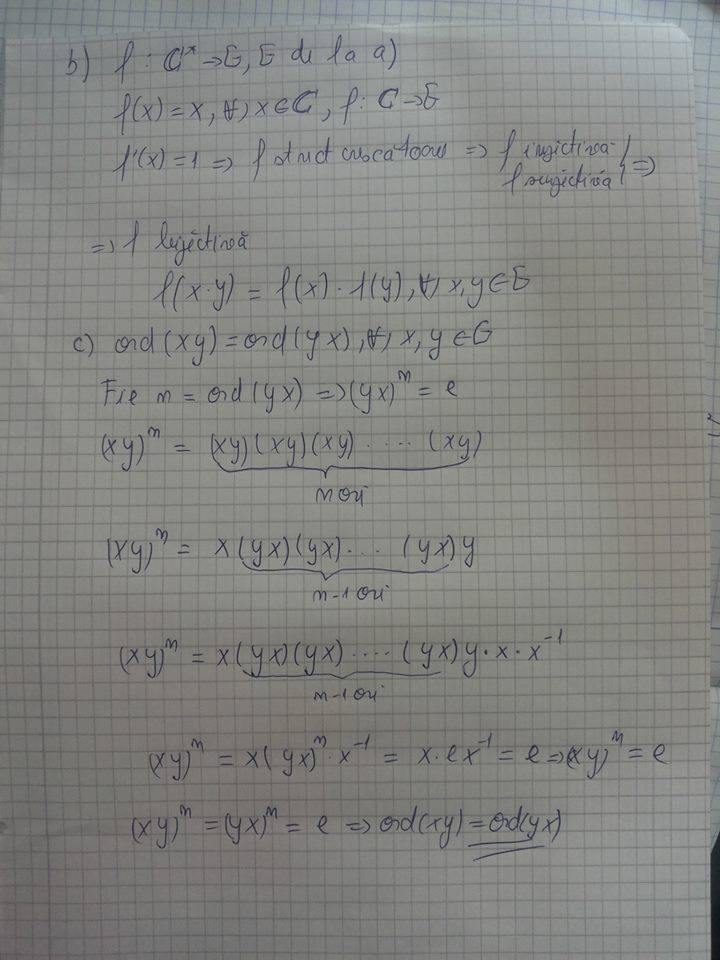 b) f : ℂ* → G, G de la a)
f(x) = x, ∀) x ∈ ℂ, f : ℂ → G
f'(x) = 1 => f strict crescatoare => f injectivă
f surjectivă } =>
=> f bijectivă
f(x·y) = f(x) · f(y), ∀) x, y ∈ G
c) ord(xy) = ord(yx), ∀) x, y ∈ G
Fie n = ord(yx) => (yx)ⁿ = e
(xy)ⁿ = (xy)(xy)(xy) ..... (xy)
n ori
(xy)ⁿ = x(yx)(yx) .... (yx)y
n-1 ori
(xy)ⁿ = x(yx)(yx) ..... (yx)y·x·x⁻¹
n-1 ori
(xy)ⁿ = x(yx)ⁿ·x⁻¹ = x·ex⁻¹ = e => (xy)ⁿ = e
(xy)ⁿ = (yx)ⁿ = e => ord(xy) = ord(yx)